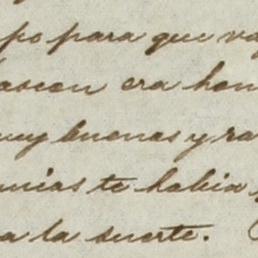 po para que va
ascon era hon
muy buenas y ra
uias te habia
a la suerte.